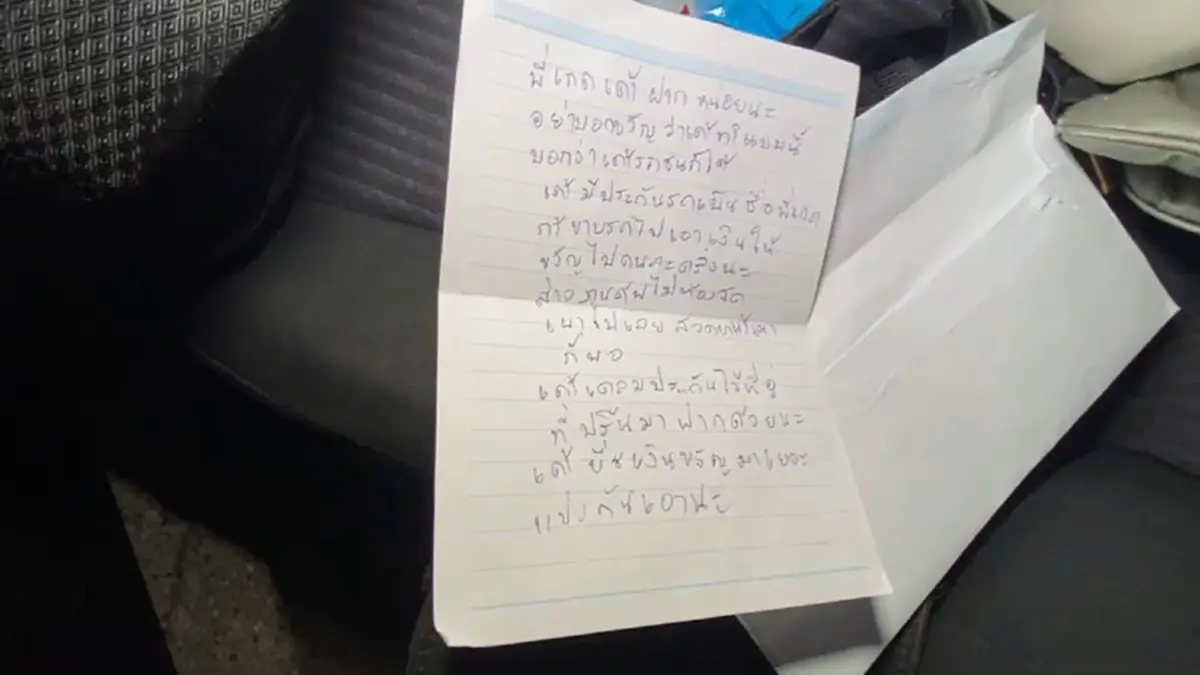 พี่เกด เค้า ฝาก หน่อยนะ
อย่าบอกขวัญ ว่าเค้าทำแบบนี้
บอกว่าเค้ารถชนก็ได้
เค้ามีประกันรถเป็น ชื่อพี่เกด
ถ้าขายรถไปเอาเงินให้
ขวัญไปคนละครึ่งนะ
ส่วน ไม่ต้องสวด
เผาไปเลย สวดหน้าเตา
ก็พอ
เค้าเคลมประกันไว้ที่อู่
ที่ มาฝากด้วยนะ
เค้า ยืมเงินขวัญมาเยอะ
แบ่งกันเอานะ